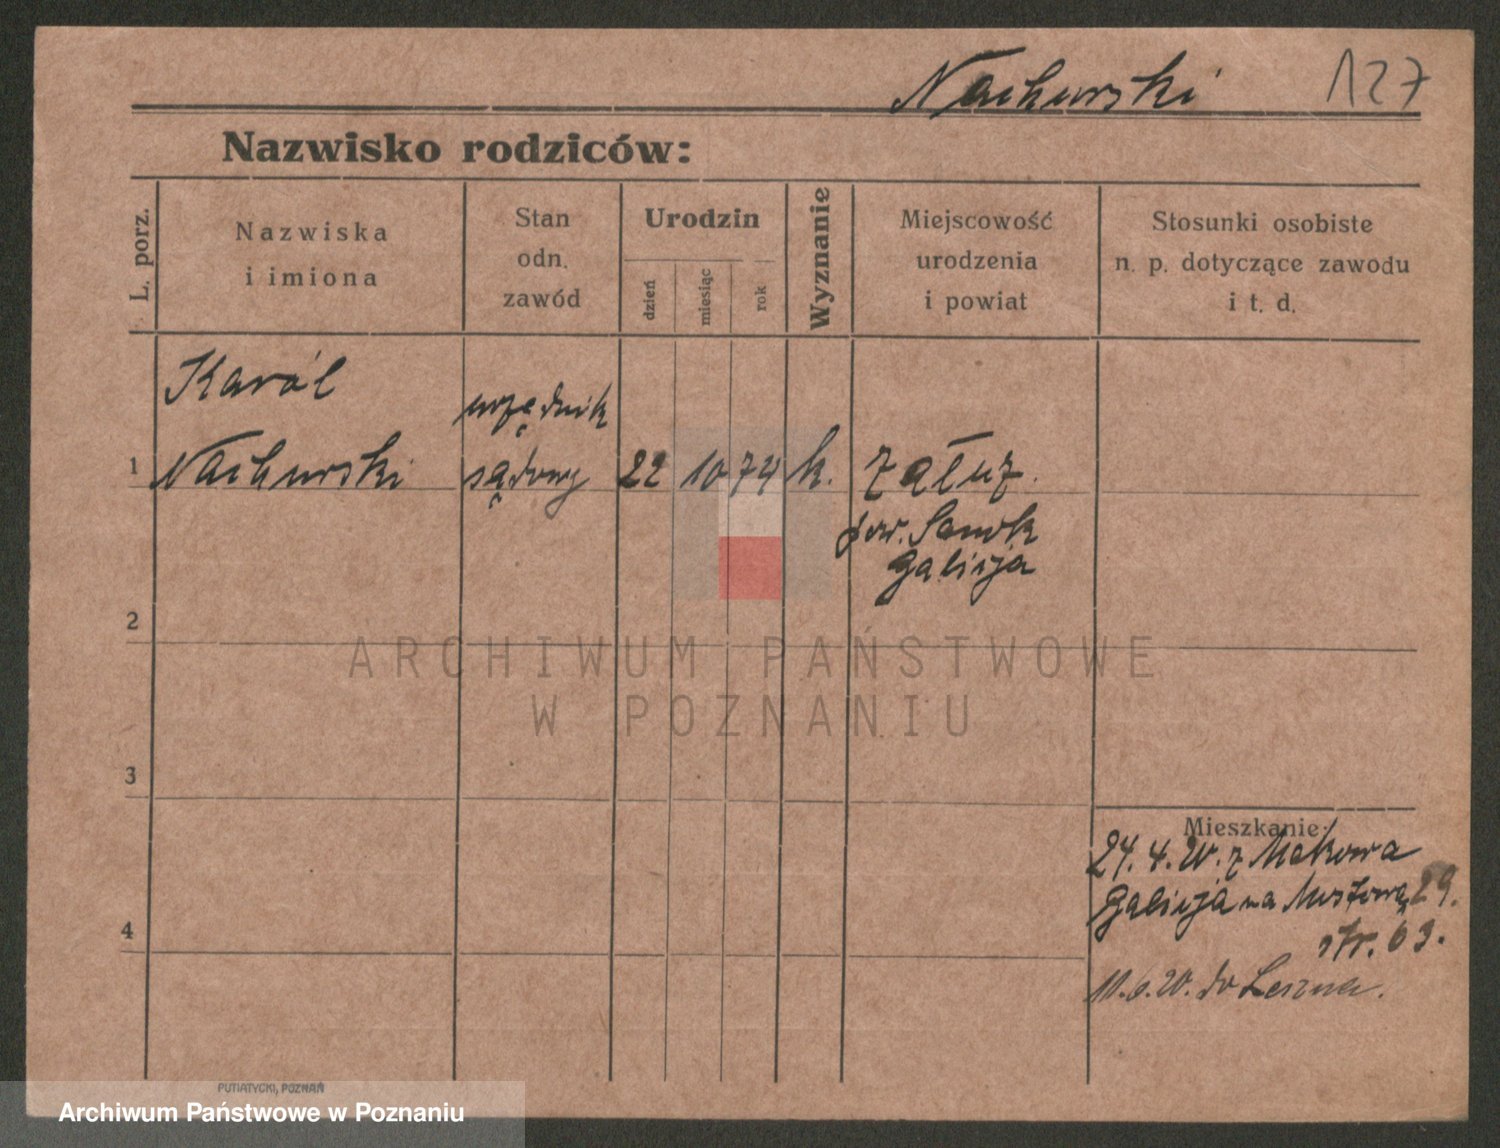 Nachurski 127
Nazwisko rodziców:
L. porz.
Nazwiska
i imiona
Stan
odn.
zawód
Urodzin
dzień
miesiąc
rok
Wyznanie
Miejscowość
urodzenia
i powiat
Stosunki osobiste
n. p. dotyczące zawodu
i t. d.
Karól
urzędnik
1 Nachurski sądowy 22 10 74 k. Załuz
pow. Sanok
Galicja
2
ARCHIWUM PAŃSTWOWE
W POZNANIU
3
Mieszkanie:
24. 4. 20. z Makowa
Galicja na Mostową 29.
str. 63.
4
10. 6. 20. do Leszna.
PUTIATYCKI, POZNAŃ
Archiwum Państwowe w Poznaniu